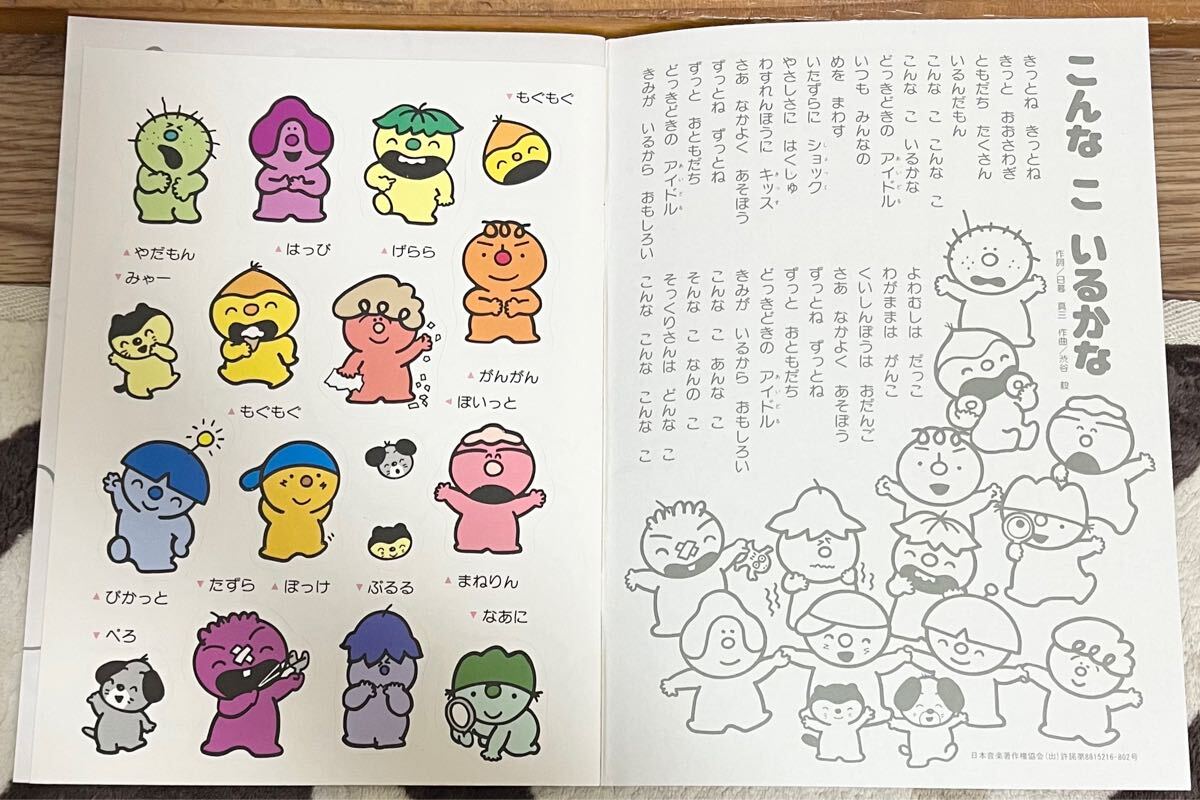 ▼もぐもぐ
▲やだもん
▲はっぴ
▲げらら
▼みゃー
▲がんがん
▲もぐもぐ
◀ぽいっと
▲ぴかっと
▼たずら
▲ぽっけ
▼ぶるる
▲まねりん
▼ぺろ
▼なあに
こんな こ いるかな
作詞／日暮 真三 作曲／渋谷 毅
きっとね きっとね
きっと おおさわぎ
ともだち たくさん
いるんだもん
こんな こ こんな こ
こんな こ いるかな
どっきどきの アイドル
いつも みんなの
めを まわす
いたずらに ショック
やさしさに はくしゅ
わすれんぼうに キッス
さあ なかよく あそぼう
ずっとね ずっとね
ずっと おともだち
どっきどきの アイドル
きみが いるから おもしろい
よわむしは だっこ
わがままは がんこ
くいしんぼうは おだんご
さあ なかよく あそぼう
ずっとね ずっとね
ずっと おともだち
どっきどきの アイドル
きみが いるから おもしろい
こんな こ あんな こ
そんな こ なんの こ
そっくりさんは どんな こ
こんな こんな こんな こ
日本音楽著作権協会(出)許諾第8815216-802号